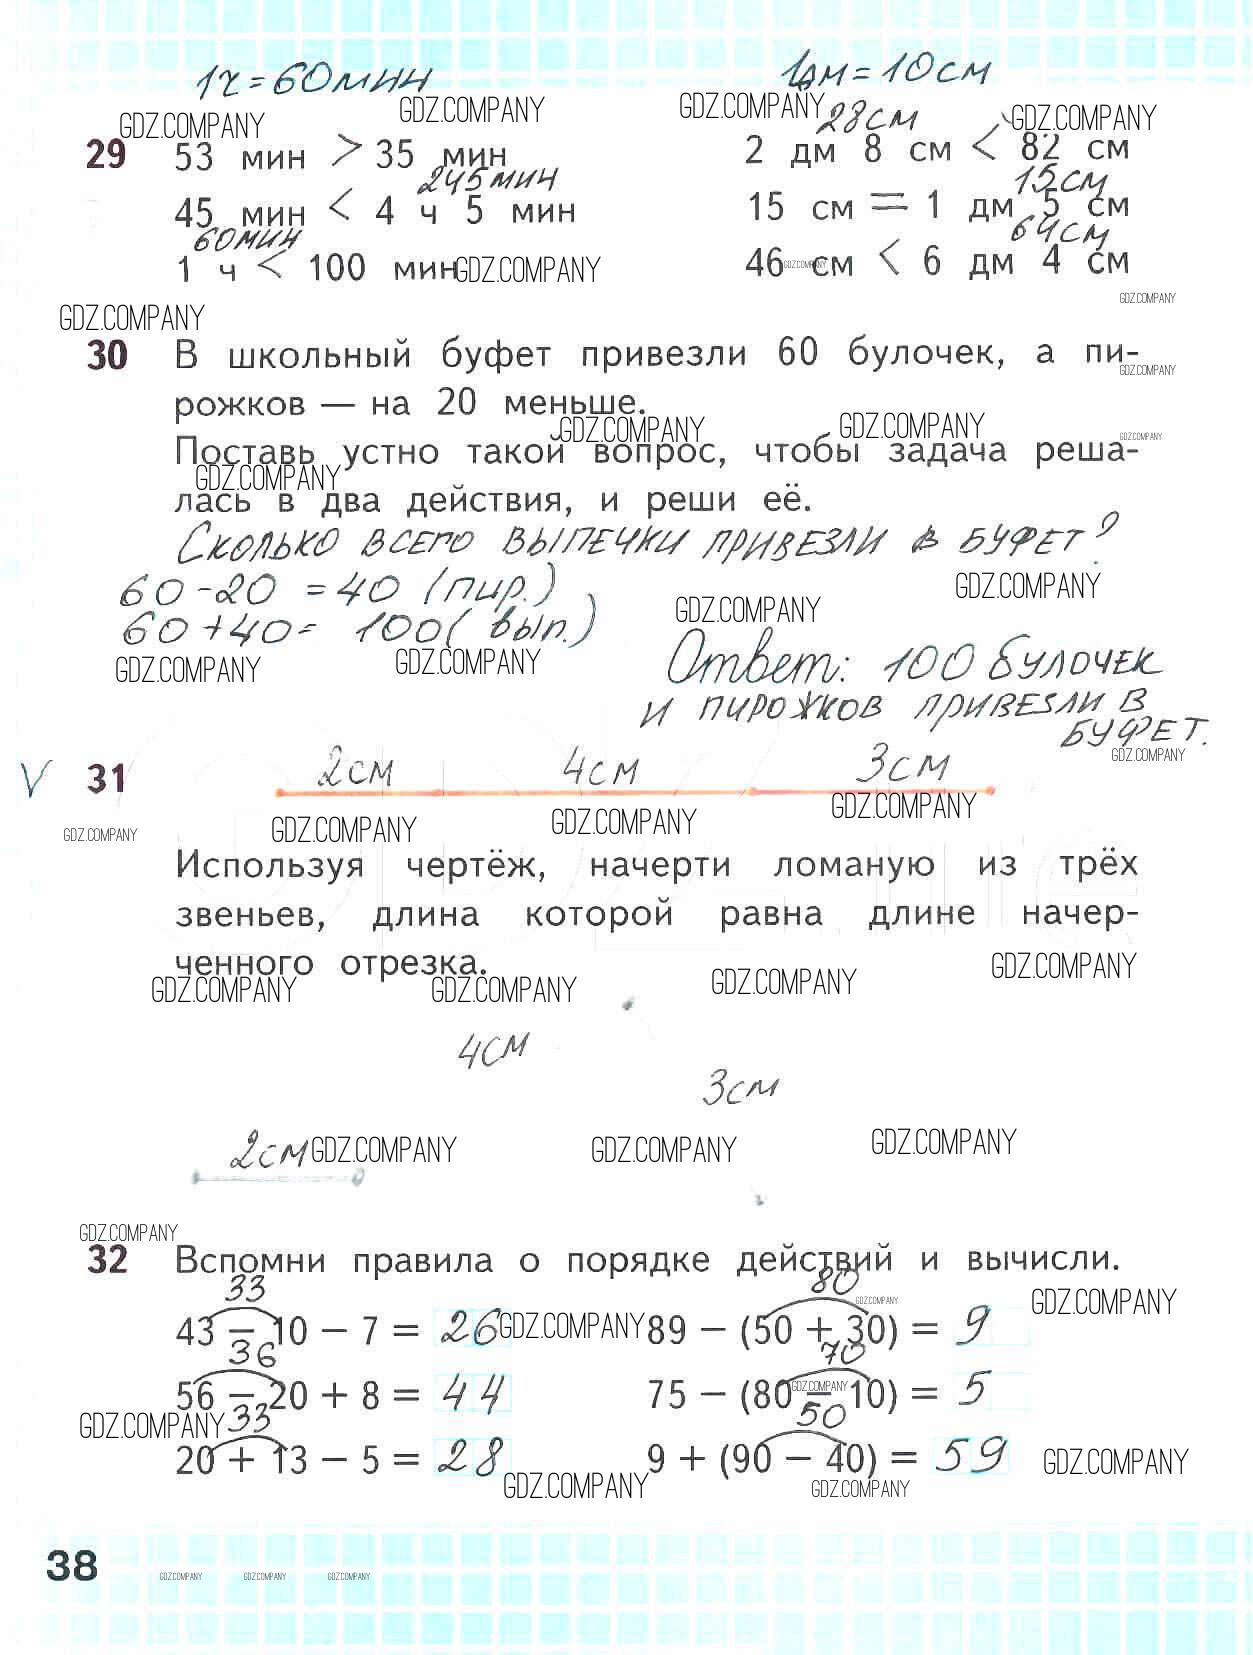 1ч = 60 мин
1дм = 10 см
GDZ.COMPANY GDZ.COMPANY GDZ.COMPANY 28 см GDZ.COMPANY
29 53 мин > 35 мин 2 дм 8 см < 82 см
245 мин 15 см
45 мин < 4 ч 5 мин 15 см = 1 дм 5 см
60 мин 64 см
1 ч < 100 мин GDZ.COMPANY 46 GDZ.COMPANY см < 6 дм 4 см
GDZ.COMPANY GDZ.COMPANY
30 В школьный буфет привезли 60 булочек, а пи-
GDZ.COMPANY
рожков — на 20 меньше.
GDZ.COMPANY GDZ.COMPANY GDZ.COMPANY
Поставь устно такой вопрос, чтобы задача реша-
GDZ.COMPANY
лась в два действия, и реши её.
Сколько всего выпечки привезли в буфет?
60 - 20 = 40 (пир.) GDZ.COMPANY GDZ.COMPANY
60 + 40 = 100 (вып.)
GDZ.COMPANY GDZ.COMPANY Ответ: 100 булочек
и пирожков привезли в
буфет.
GDZ.COMPANY
V 31 2 см 4 см 3 см
GDZ.COMPANY GDZ.COMPANY GDZ.COMPANY GDZ.COMPANY
Используя чертёж, начерти ломаную из трёх
звеньев, длина которой равна длине начер-
ченного отрезка.
GDZ.COMPANY GDZ.COMPANY GDZ.COMPANY GDZ.COMPANY
4 см
3 см
2 см GDZ.COMPANY GDZ.COMPANY GDZ.COMPANY
GDZ.COMPANY
32 Вспомни правила о порядке действий и вычисли.
33 80 GDZ.COMPANY GDZ.COMPANY
43 − 10 − 7 = 26 GDZ.COMPANY 89 − (50 + 30) = 9
36 70
56 − 20 + 8 = 44 75 − (80 − 10) = 5 GDZ.COMPANY
GDZ.COMPANY 33 50
20 + 13 − 5 = 28 9 + (90 − 40) = 59 GDZ.COMPANY
GDZ.COMPANY GDZ.COMPANY
38 GDZ.COMPANY GDZ.COMPANY GDZ.COMPANY